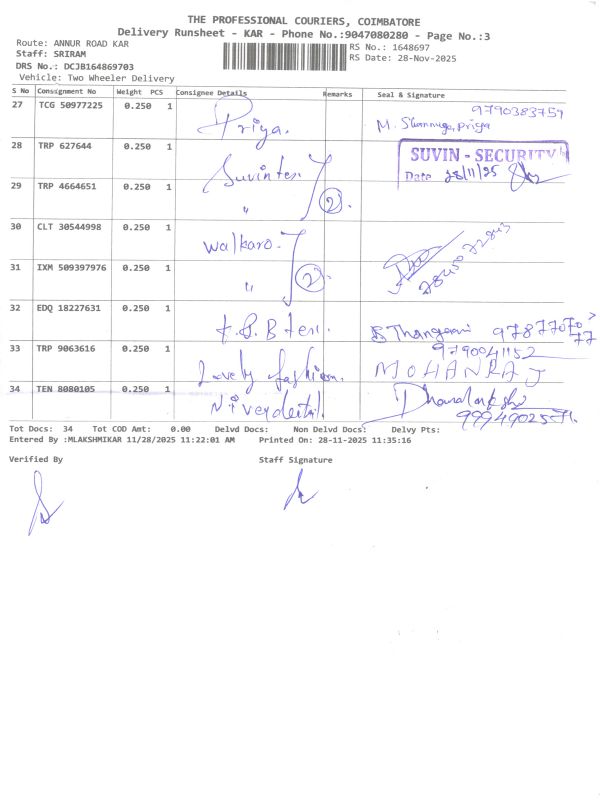 THE PROFESSIONAL COURIERS, COIMBATORE
Delivery Runsheet - KAR - Phone No.:9047080280 - Page No.:3
Route: ANNUR ROAD KAR
Staff: SRIRAM
DRS No.: DCJB164869703
Vehicle: Two Wheeler Delivery
RS No.: 1648697
RS Date: 28-Nov-2025
S No Consignment No Weight PCS Consignee Details Remarks Seal & Signature
27 TCG 50977225 0.250 1 Priya. 9790383759
M. Shanmuga priya
28 TRP 627644 0.250 1 Suvintex SUVIN - SECURITY
Date 28/11/25
29 TRP 4664651 0.250 1 " 2
30 CLT 30544998 0.250 1 Walkaro
31 IXM 509397976 0.250 1 " 2
32 EDQ 18227631 0.250 1
33 TRP 9063616 0.250 1 Lovely fashion. 9790041152
MOHANRAJ
34 TEN 8080105 0.250 1
Tot Docs: 34 Tot COD Amt: 0.00 Delvd Docs: Non Delvd Docs: Delvy Pts:
Entered By :MLAKSHMIKAR 11/28/2025 11:22:01 AM Printed On: 28-11-2025 11:35:16
Verified By Staff Signature